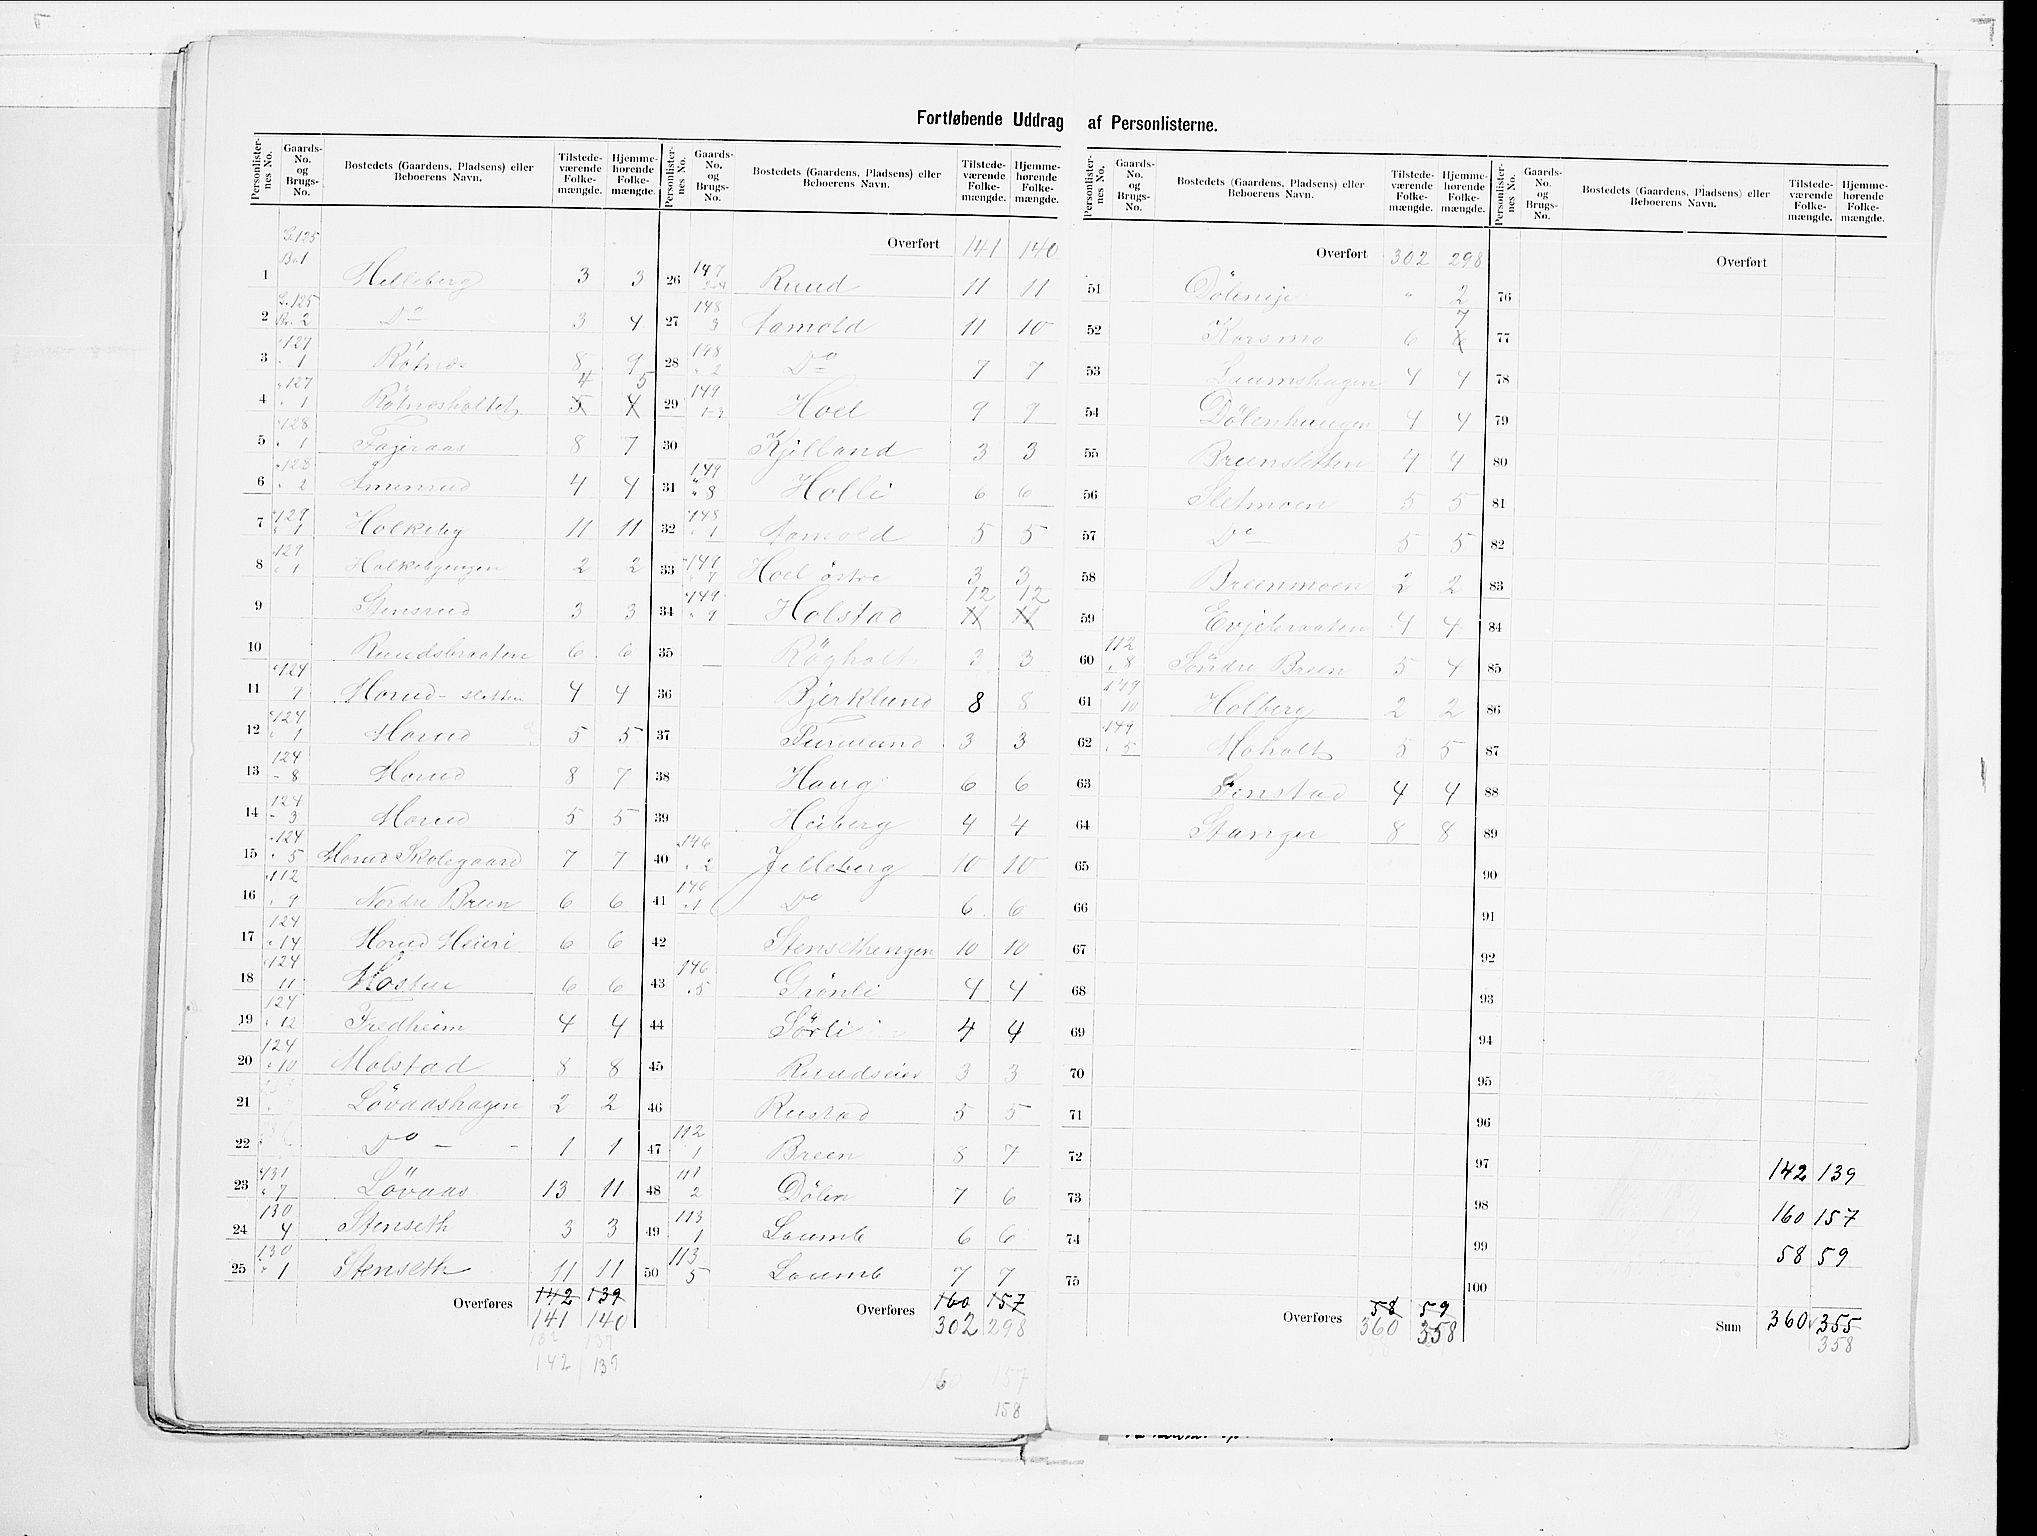 Fortløbende Uddrag af Personlisterne.
Personlister-nes No. Gaards-No. og Brugs-No. Bostedets (Gaardens, Pladsens) eller Beboerens Navn. Tilstede-værende Folke-mængde. Hjemme-hørende Folke-mængde.
G. 125
1 Br. 1 Helleberg 3 3
G. 125
2 Br. 2 Do 3 4
127
3 1 Rötnes 8 9
127 4 5
4 1 Rötnesholtet 5 4
128
5 1 Fageraas 8 7
128
6 2 4 4
129
7 1 Holkeby 11 11
129
8 1 Holkebyengen 2 2
9 Stensrud 3 3
10 Ruudsbraaten 6 6
124
11 7 Morud-sletten 4 4
124
12 1 Morud 5 5
124
13 8 Morud 8 7
124
14 3 Morud 5 5
124
15 5 Morud Skolegaard 7 7
112
16 9 Nordre Breen 6 6
124
17 14 Morud Meieri 6 6
124
18 11 Mostue 6 6
124
19 12 Fredheim 4 4
124
20 10 Molstad 8 8
21 Lövaashagen 2 2
22 Do 1 1
131
23 7 Lövaas 13 11
130
24 4 Stenseth 3 3
130
25 1 Stenseth 11 11
Overføres 142 139
141 140
137
142 139
Personlister-nes No. Gaards-No. og Brugs-No. Bostedets (Gaardens, Pladsens) eller Beboerens Navn. Tilstede-værende Folke-mængde. Hjemme-hørende Folke-mængde.
Overført 141 140
147
26 Ruud 11 11
148
27 3 Aamold 11 10
198
28 2 Do 7 7
149
29 1-3 Hoel 9 9
30 Kjelland 3 3
149
31 8 Holli 6 6
148
32 1 Aamold 5 5
149
33 7 Hoel östre 3 3
149 12 12
34 9 Holstad 11 11
35 Rögholt 3 3
36 Bjerklund 8 8
37 Furulund 3 3
38 Haug 6 6
39 Heiberg 4 4
146
40 2 Jelleberg 10 10
146
41 1 Do 6 6
42 Stensethengen 10 10
146
43 5 Grönli 4 4
44 Sörli 4 4
45 Ruudseier 3 3
46 Rustad 5 5
112
47 1 Breen 8 7
111
48 2 Dölen 7 6
113
49 1 Laumb 6 6
113
50 5 Laumb 7 7
Overføres 160 157
302 298
160 157
158
Personlister-nes No. Gaards-No. og Brugs-No. Bostedets (Gaardens, Pladsens) eller Beboerens Navn. Tilstede-værende Folke-mængde. Hjemme-hørende Folke-mængde.
Overført 302 298
51 Döleneje " 2
7
52 Korsmo 6 6
53 Laumshagen 4 4
54 Dölenhaugen 4 4
55 Breensletten 4 4
56 Sletmoen 5 5
57 Do 5 5
58 Breenmoen 2 2
59 Evjebraaten 4 4
112
60 8 Söndre Breen 5 4
149
61 10 Holberg 2 2
149
62 5 Moholt 5 5
63 Finstad 4 4
64 Stanger 8 8
65
66
67
68
69
70
71
72
73
74
75
Overføres 58 59
360 358
Personlister-nes No. Gaards-No. og Brugs-No. Bostedets (Gaardens, Pladsens) eller Beboerens Navn. Tilstede-værende Folke-mængde. Hjemme-hørende Folke-mængde.
Overført
76
77
78
79
80
81
82
83
84
85
86
87
88
89
90
91
92
93
94
95
96
97 142 139
98 160 157
99 58 59
100
Sum 360 355
358